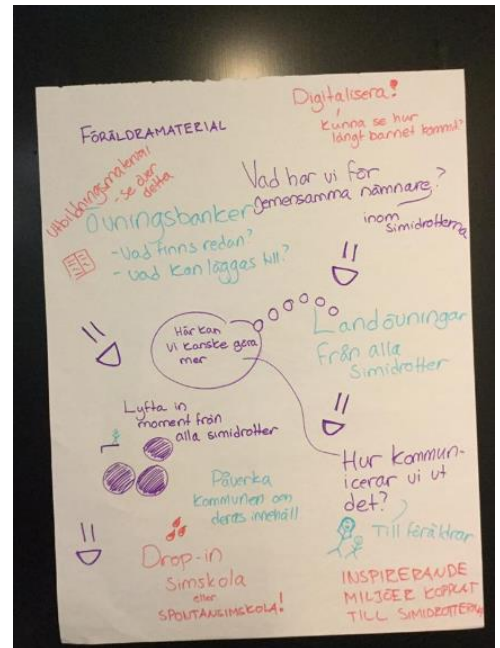 FÖRÄLDRAMATERIAL
Digitalisera!
Kunna se hur
långt barnet kommit?
Utbildningsmaterial
- se över
detta
Övningsbanker
- Vad finns redan?
- vad kan läggas till?
Vad har vi för
gemensamma nämnare?
inom
simidrotterna
Här kan
vi kanske göra
mer
Landövningar
från alla
Simidrotter
Lyfta in
moment från
alla simidrotter
Påverka
kommunen om
deras innehåll
Hur kommun-
icerar vi ut
det?
Till föräldrar
Drop-in
Simskola
eller
SPONTANSIMSKOLA!
INSPIRERANDE
MILJÖER KOPPLAT
TILL SIMIDROTTERNA